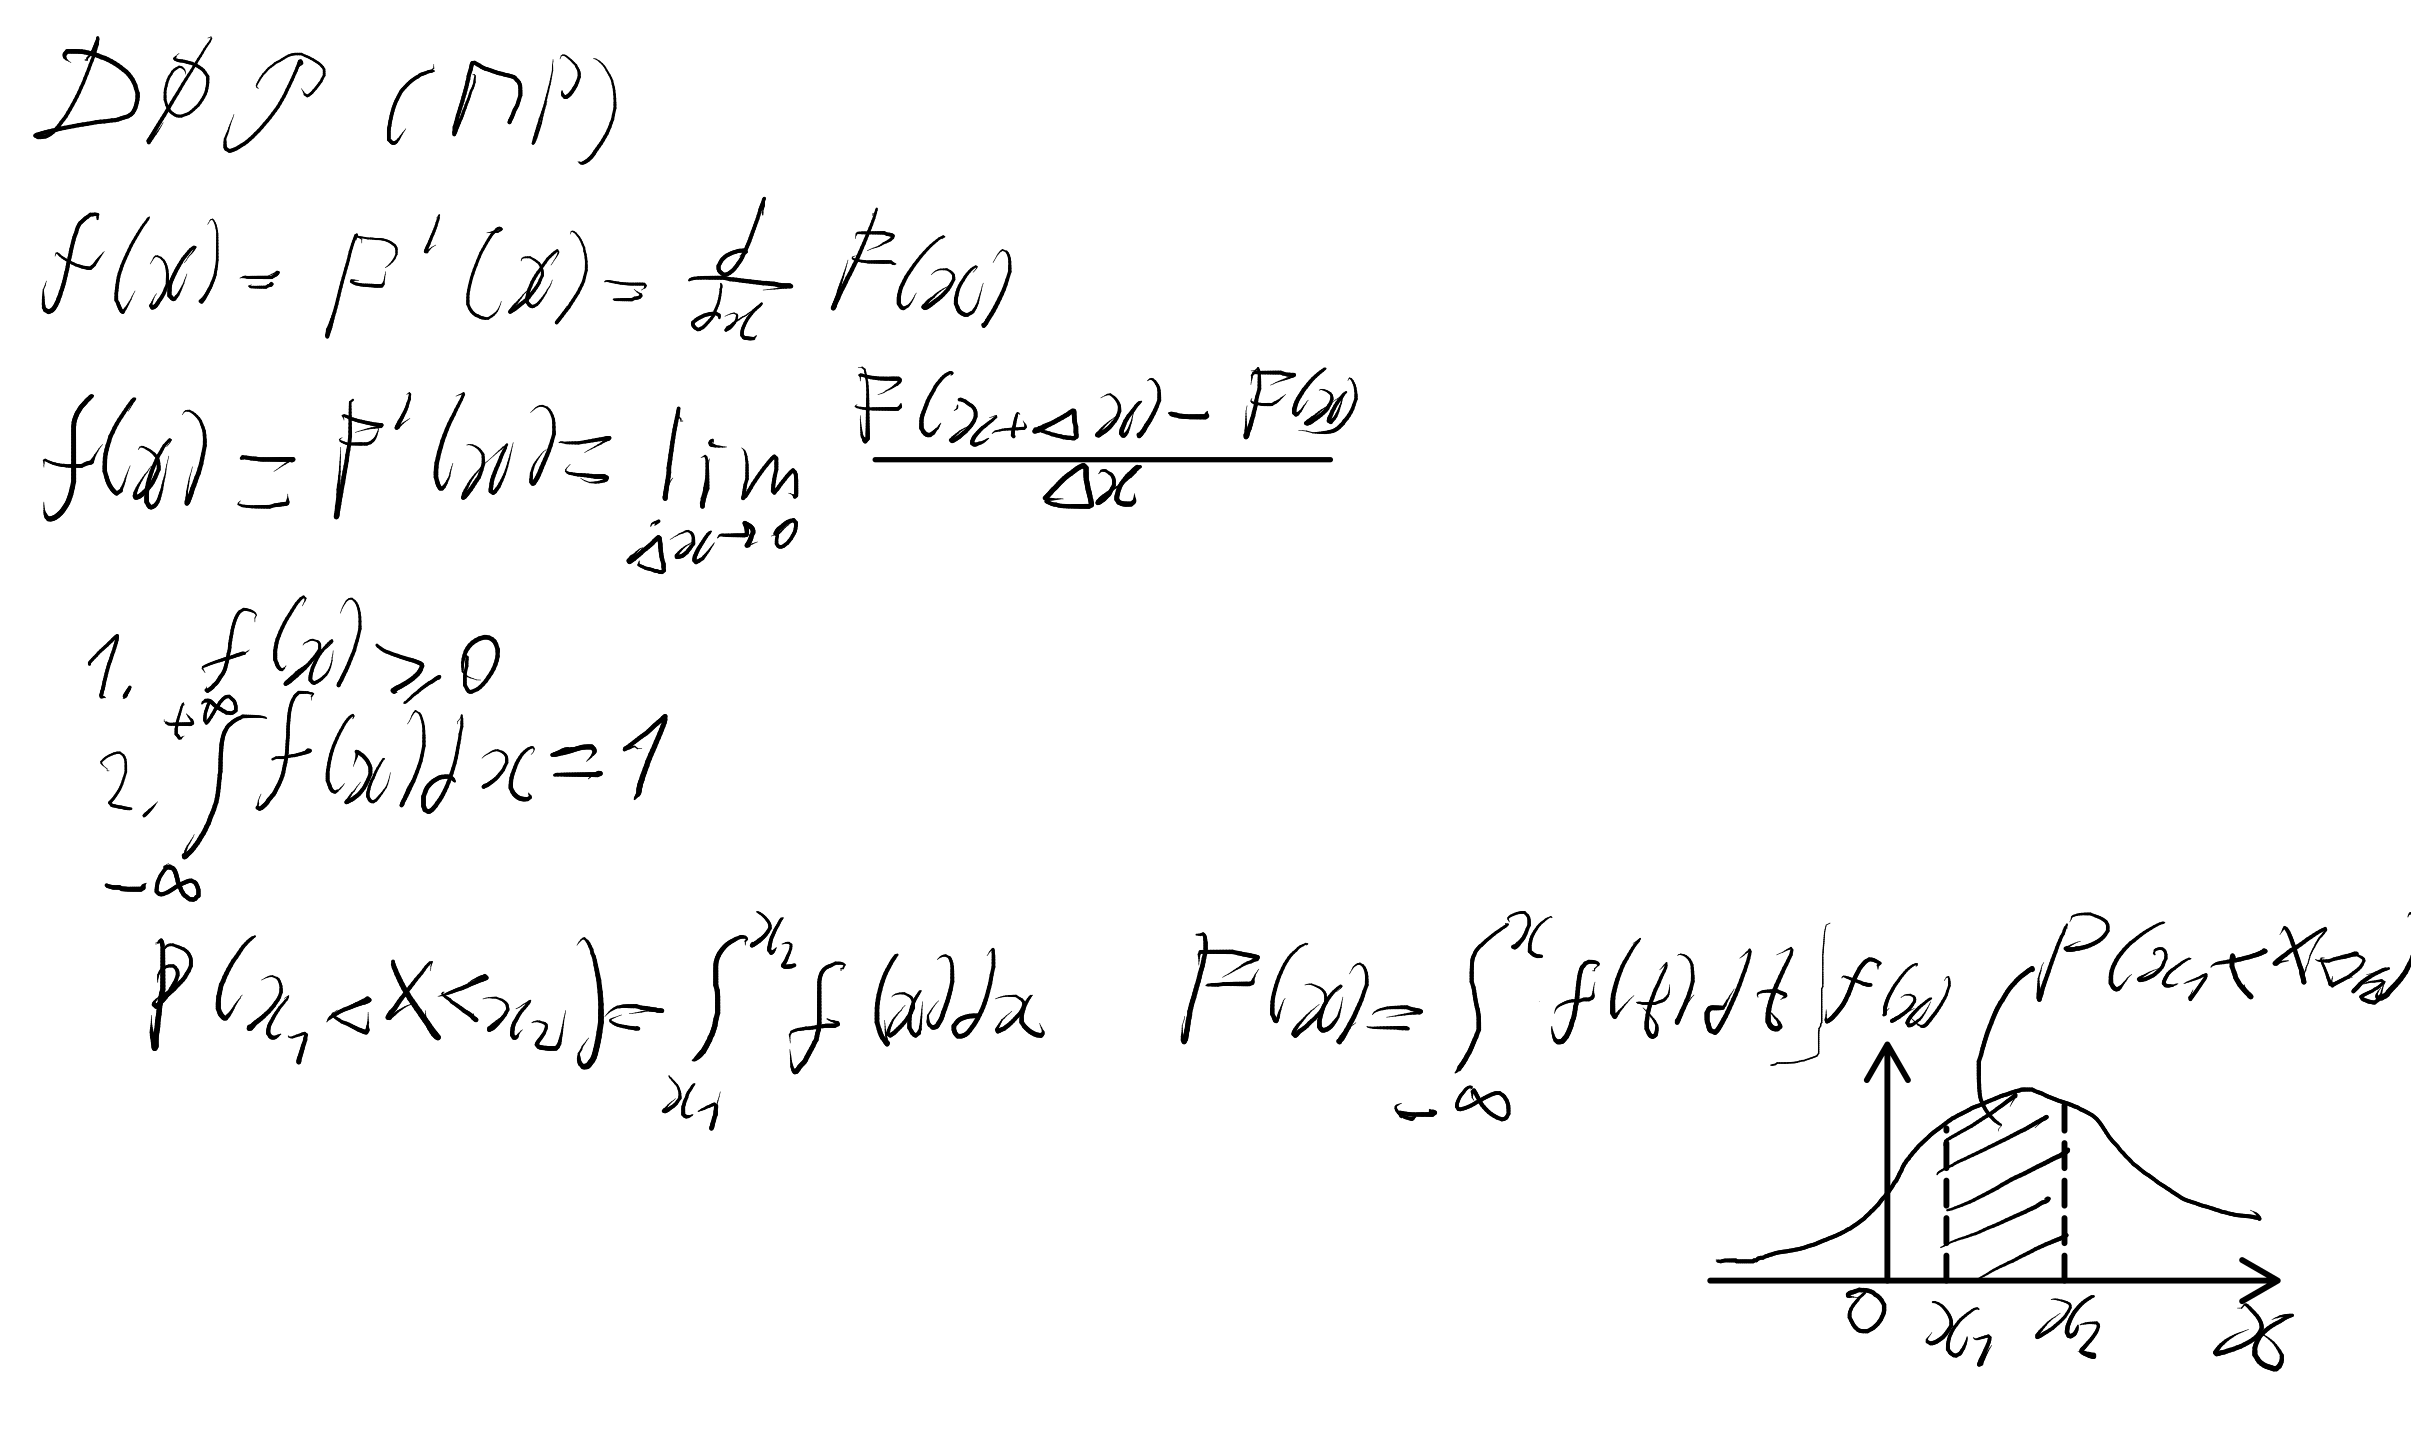 ДФР (ПР)
f(x) = F'(x) = d/dx F(x)
f(x) = F'(x) = lim Δx→0 (F(x+Δx) - F(x))/Δx
1. f(x) ⩾ 0
2. ∫_{-∞}^{+∞} f(x)dx = 1
P(x₁ < X < x₂) = ∫_{x₁}^{x₂} f(x)dx F(x) = ∫_{-∞}^{x} f(t)dt
f(x) P(x₁ < X < x₂)
0 x₁ x₂ x